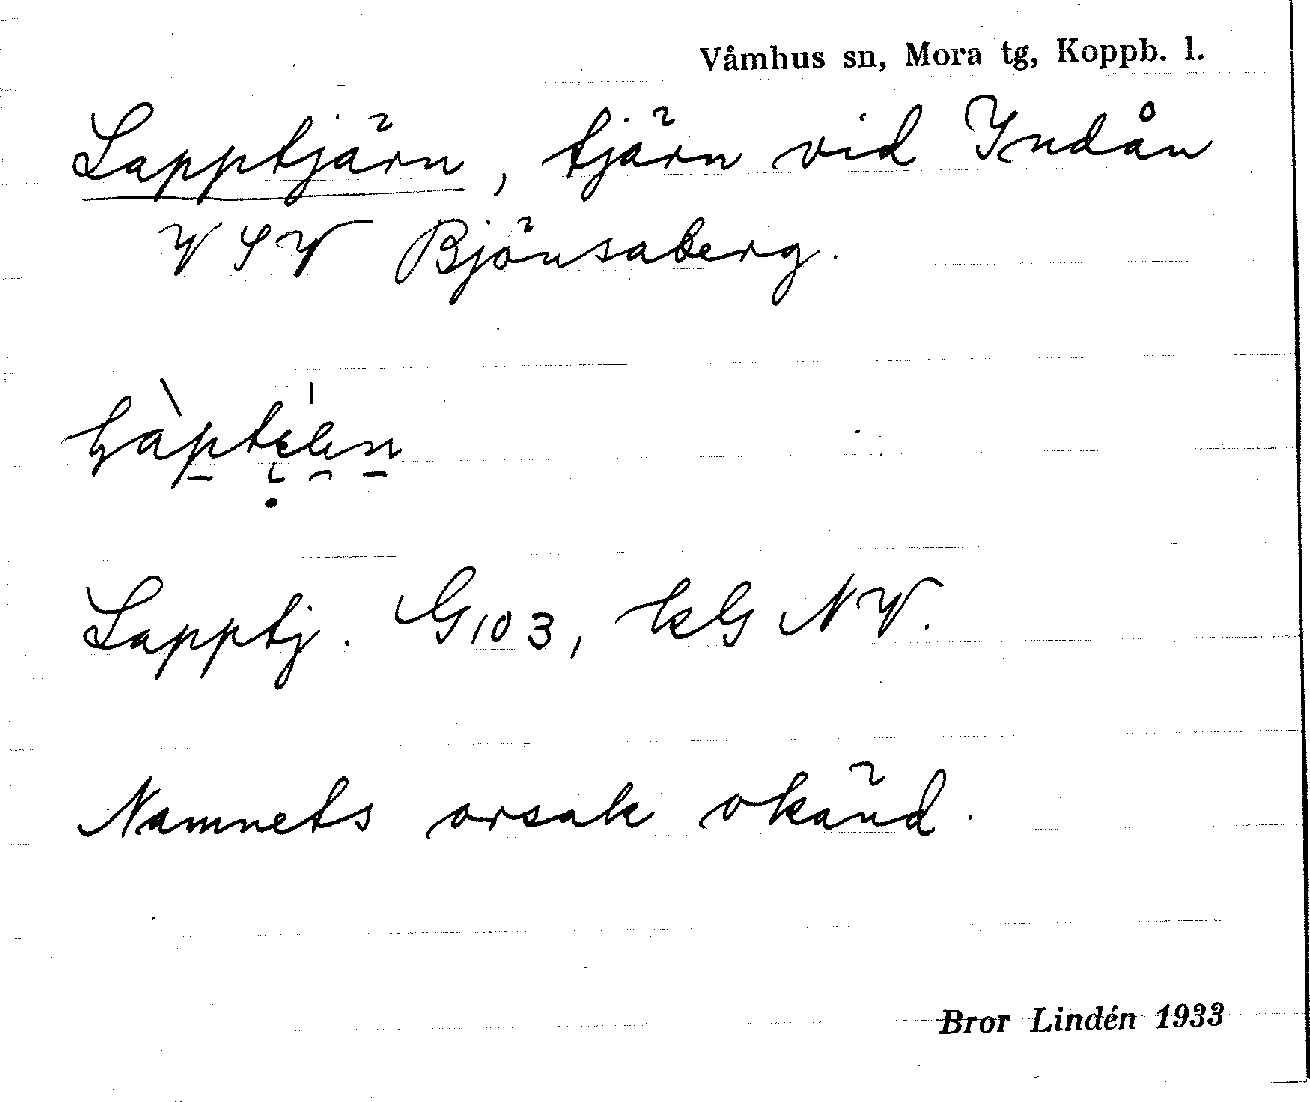 Våmhus sn, Mora tg, Koppb. l.
Lapptjärn, tjärn vid Indån
VSV Björnsaberg.
Lapptj. G103, kG NV.
Namnets orsak okänd.
Bror Lindén 1933